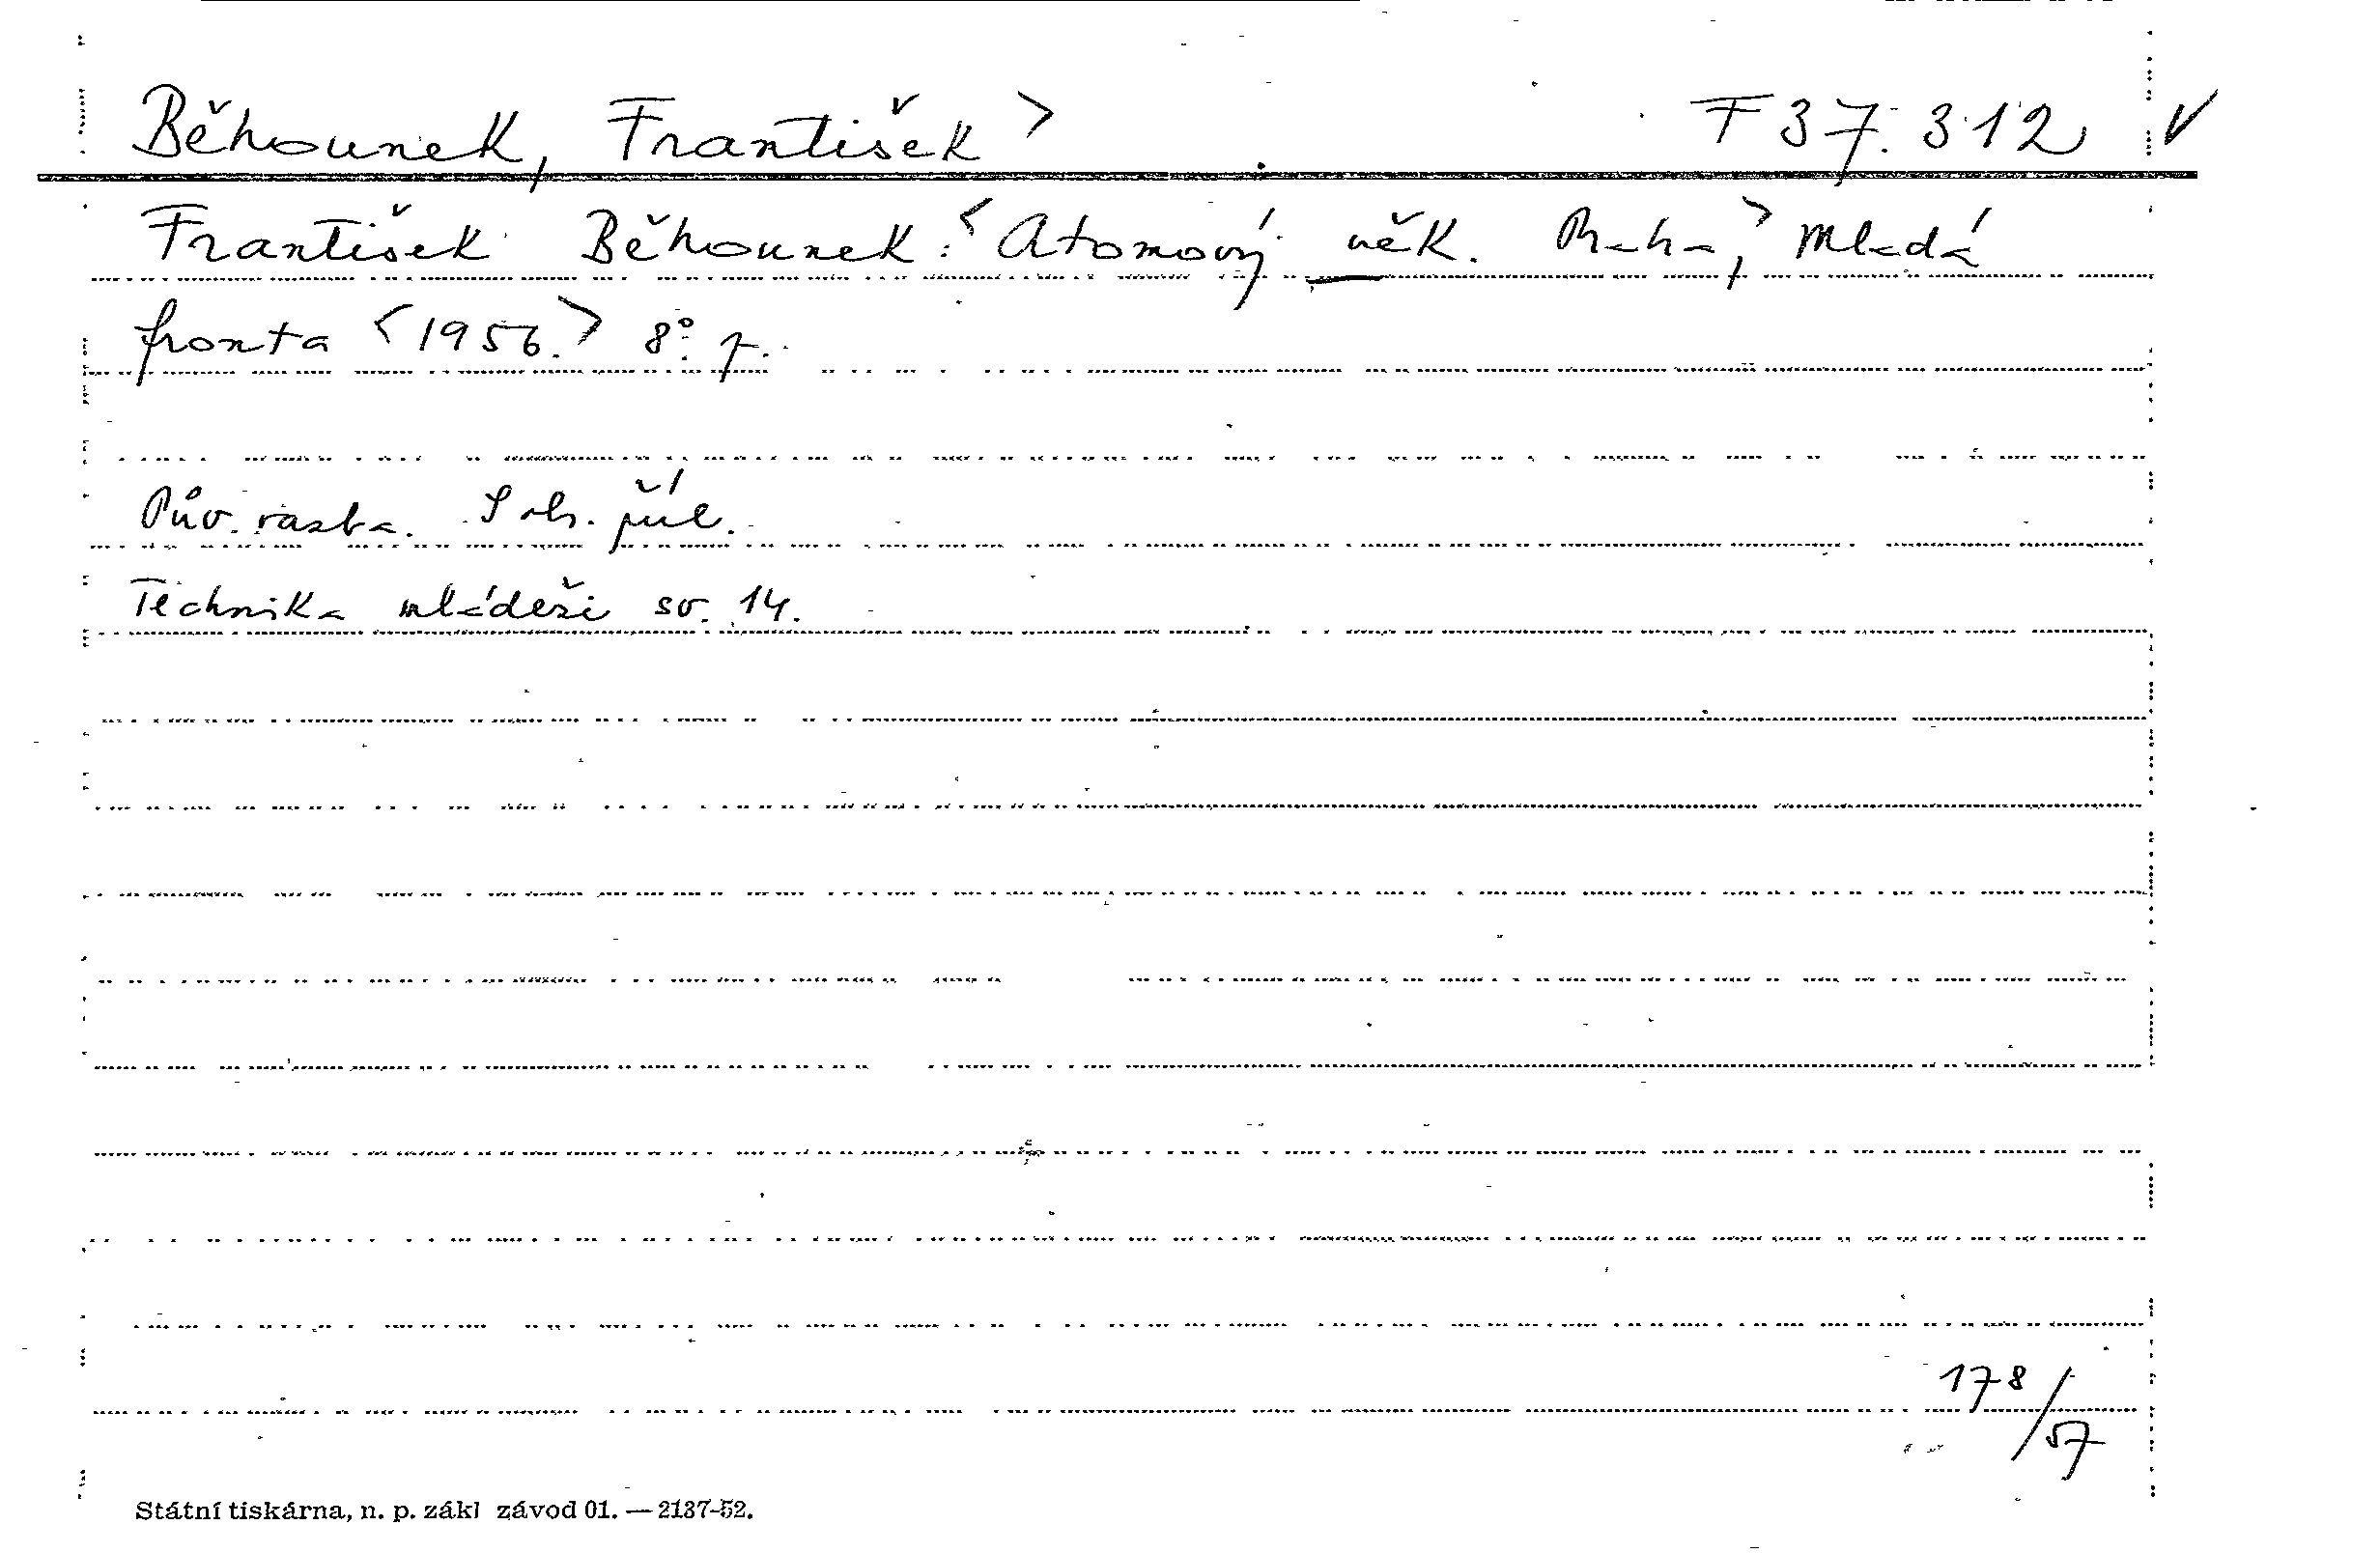 Běhounek, František > F 37.312 V
František Běhounek: <Atomový věk. Praha,> Mladá
fronta <1956.> 8°. 7.
Pův. vazba. Sob. příl.
Technika mládeži sv. 14.
178/57
Státní tiskárna, n. p. zákl závod 01. — 2137-52.